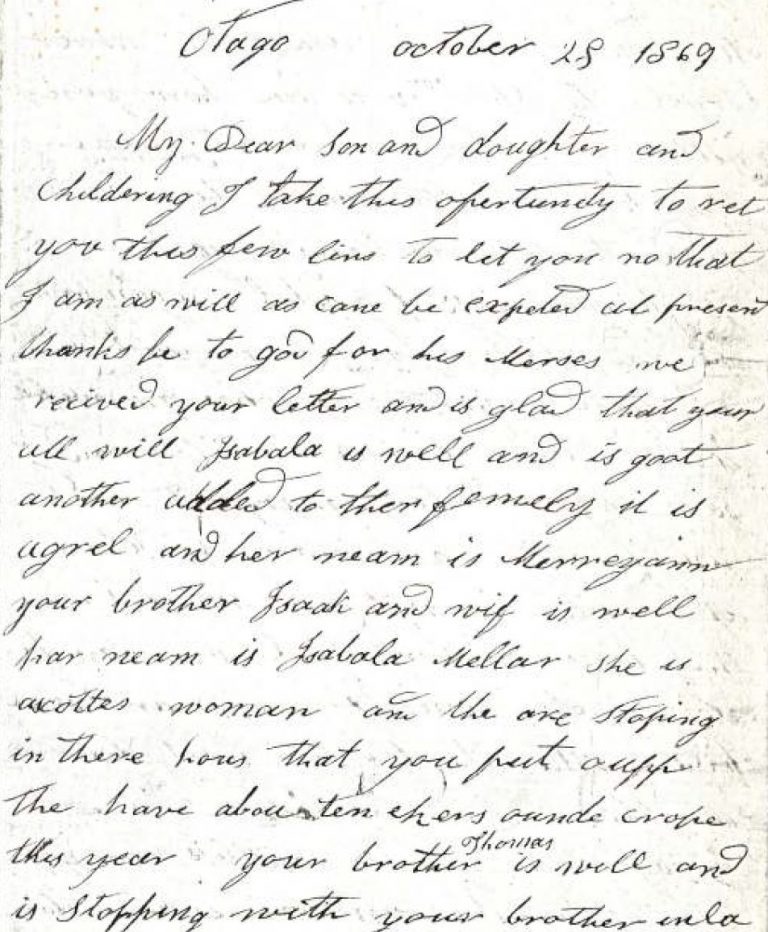 Otago october 28 1869
My Dear son and doughter and
Childering I take this opertundy to ret
you this few lins to let you no that
I am as will as cane be expeted at present
thanks be to god for his Merses we
reciived your letter and is glad that your
all will Isabala is well and is goat
another added to ther femely it is
agrel and her neam is Merreyann
your brother Isaak and wif is well
har neam is Isabala Mellar she is
ascottes woman am the are stoping
in there hous that you put oupp
The have abou ten ekers ounde crope
this year your brother Thomas is well and
is Stopping with your brother inla